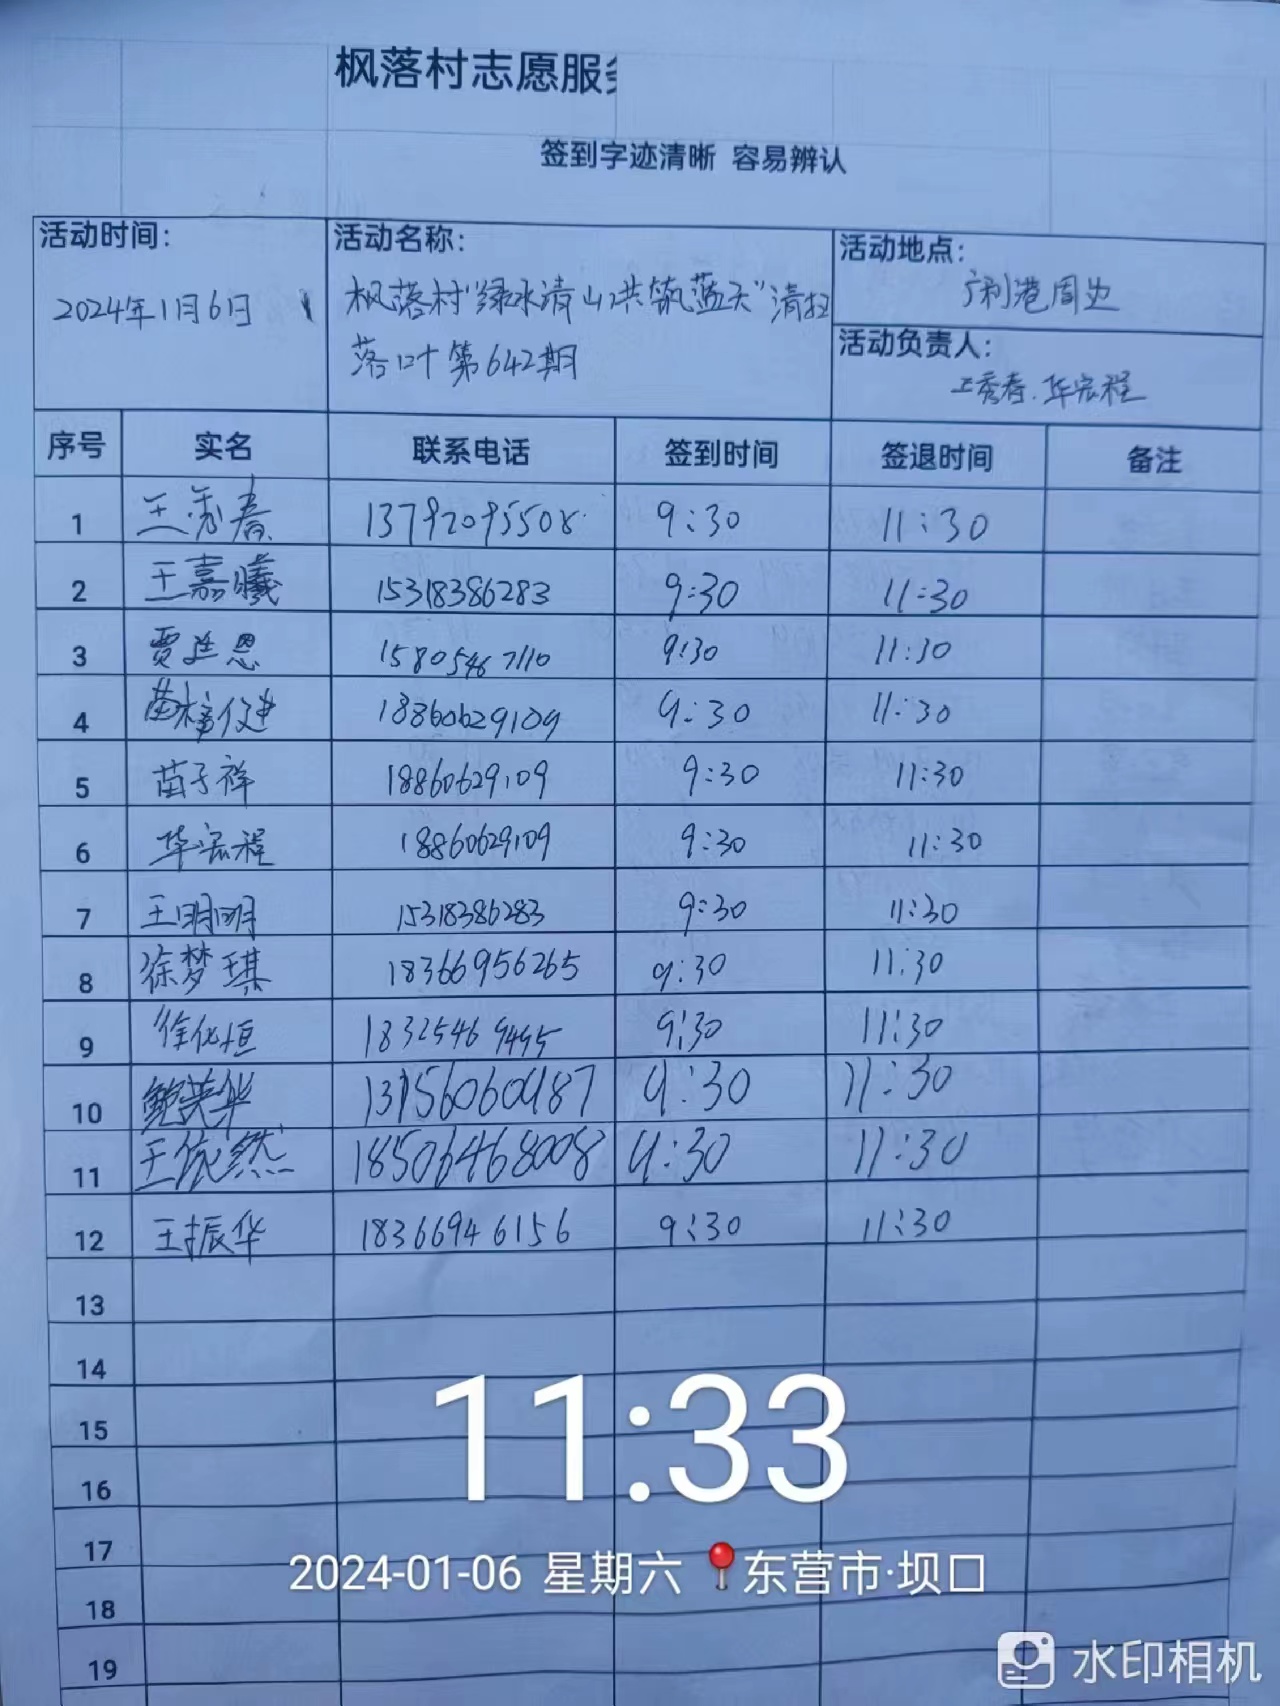 枫落村志愿服务
签到字迹清晰 容易辨认
活动时间: 活动名称: 活动地点:
2024年1月6日 枫落村"绿水清山共筑蓝天"清扫 广利港周边
落叶第642期
活动负责人:
王秀春.华宏程
序号 实名 联系电话 签到时间 签退时间 备注
1 王秀春 13792095508 9:30 11:30
2 王嘉曦 15318386283 9:30 11:30
3 贾廷恩 15805467110 9:30 11:30
4 苗 18860629109 9:30 11:30
5 苗子祥 18860629109 9:30 11:30
6 华宏程 18860629109 9:30 11:30
7 王明明 15318386283 9:30 11:30
8 徐梦琪 18366956265 9:30 11:30
9 徐化恒 18325469495 9:30 11:30
10 鲍荣华 13156060987 9:30 11:30
11 王依然 18506468008 9:30 11:30
12 王振华 18366946156 9:30 11:30
13
14
15
16
17
18
19
11:33
2024-01-06 星期六 东营市·坝口
水印相机